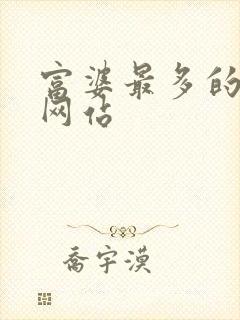 富婆最多的
网站
乔宇漠